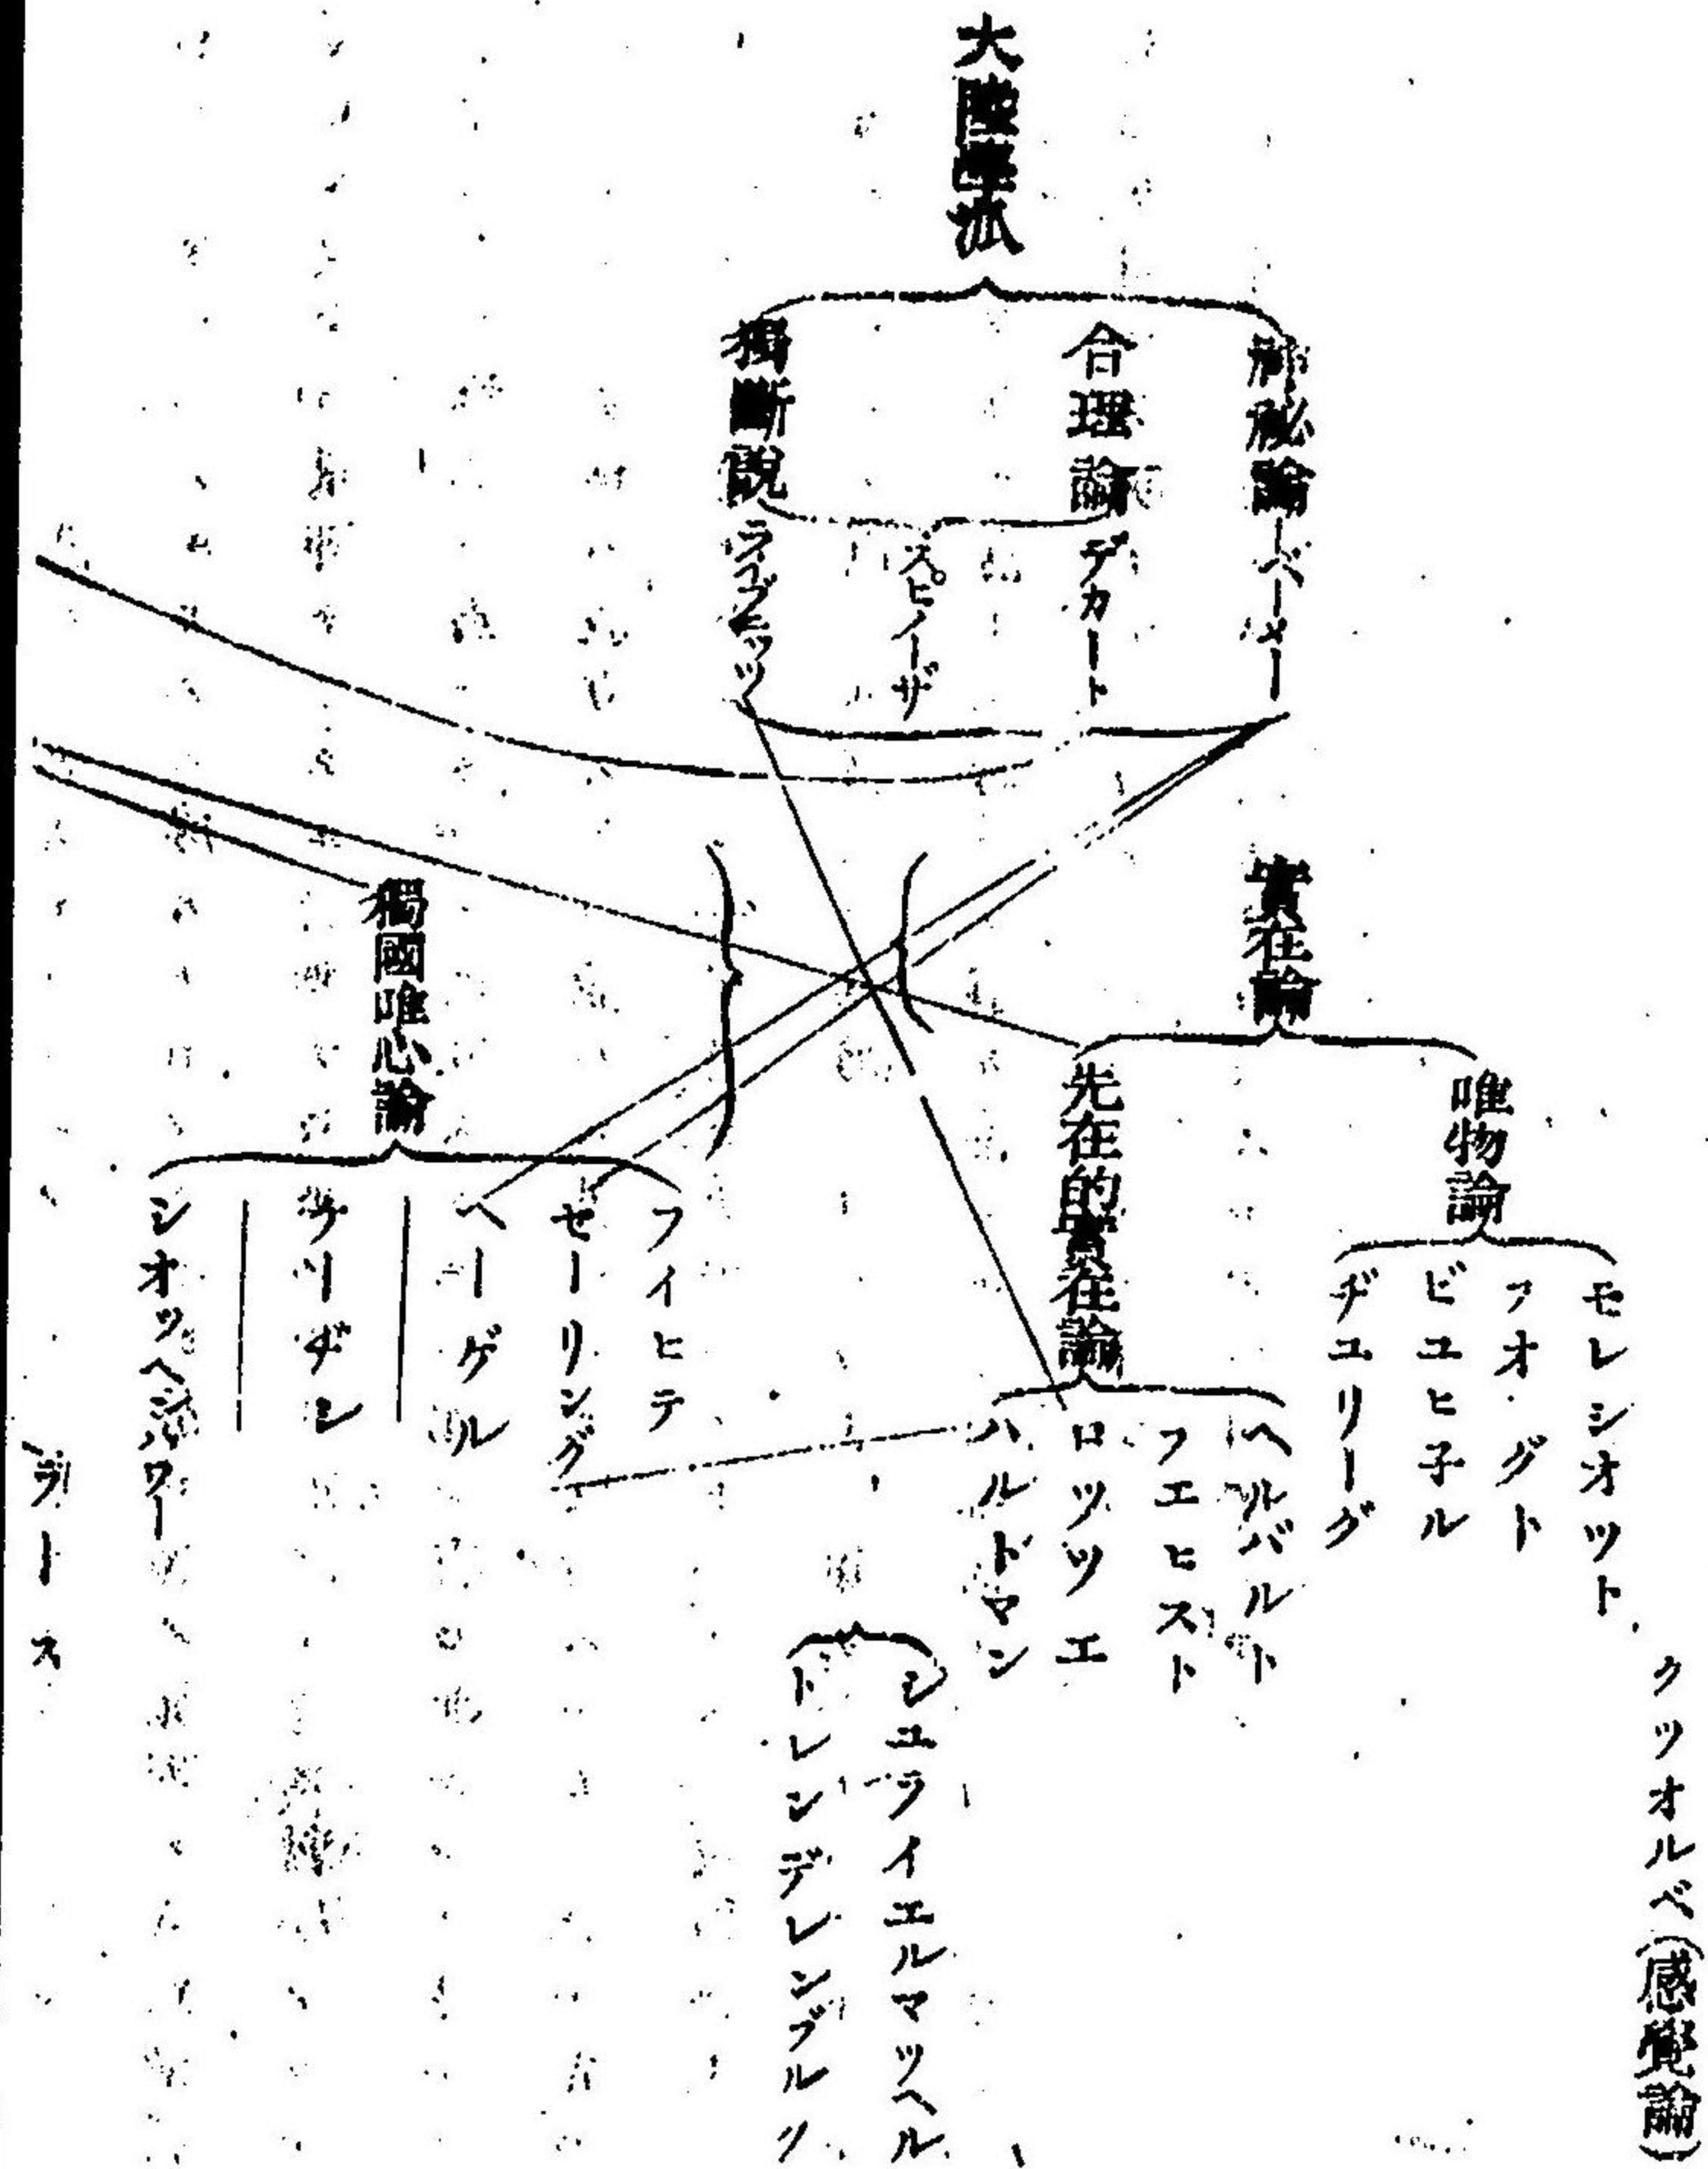 大陸學派
神秘論
ベーメー
合理論
デカート
スピノーザ
獨斷說
ライプニッツ
實在論
唯物論
モレシオツト
フオグト
ビユヒ子ル
ヂユリーグ
クツオルベ(感覺論)
先在的實在論
ヘルバルト
フエヒスト
ロツツエ
ハルトマン
シユライエルマツヘル
トレンデレンブルク
獨國唯心論
フイヒテ
セーリング
ヘーゲル
シオツペンハワー